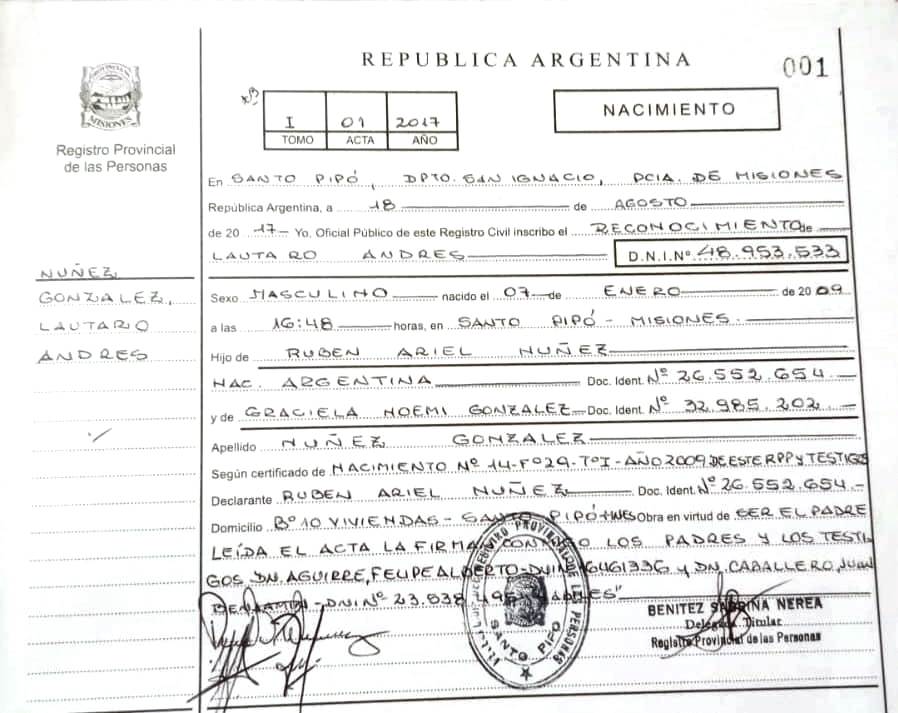 REPUBLICA ARGENTINA
001
PROVINCIA DE
MISIONES
Registro Provincial
de las Personas
I 01 2017
TOMO ACTA AÑO
NACIMIENTO
En SANTO PIPÓ, DPTO. SAN IGNACIO, PCIA. DE MISIONES
República Argentina, a 18 de AGOSTO
de 2017 Yo, Oficial Público de este Registro Civil inscribo el RECONOCIMIENTO de
LAUTARO ANDRES D.N.I. Nº 48.953.533
NUÑEZ
GONZALEZ,
LAUTARO
ANDRES
Sexo MASCULINO nacido el 07 de ENERO de 2009
a las 16:48 horas, en SANTO PIPÓ - MISIONES.
Hijo de RUBEN ARIEL NUÑEZ
NAC. ARGENTINA Doc. Ident. Nº 26.552.654
y de GRACIELA NOEMI GONZALEZ Doc. Ident. Nº 32.985.202
Apellido NUÑEZ GONZALEZ
Según certificado de NACIMIENTO Nº 14-Fº29-TºI-AÑO2009 DE ESTE RPP Y TESTIGOS
Declarante RUBEN ARIEL NUÑEZ Doc. Ident. Nº 26.552.654.-
Domicilio Bº 10 VIVIENDAS - SANTO PIPÓ Obra en virtud de SER EL PADRE
LEÍDA EL ACTA LA FIRMAN LOS PADRES Y LOS TESTI
GOS DN. AGUIRRE, FELIPE Y DN. CABALLERO, JUAN
DNI Nº 23.838
REGISTRO PROVINCIAL DE LAS PERSONAS
SANTO PIPO
BENITEZ SABRINA NEREA
Delegada Titular
Registro Provincial de las Personas